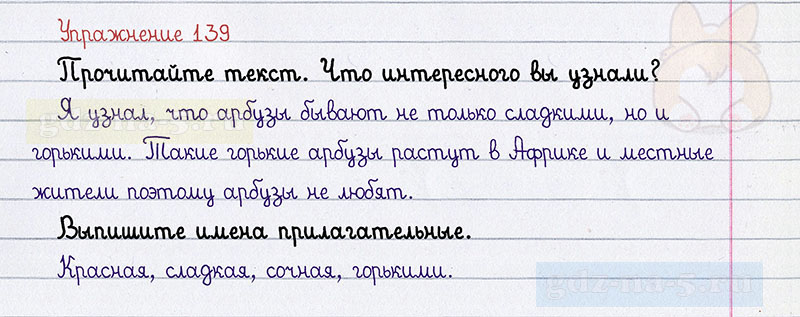 Упражнение 139
Прочитайте текст. Что интересного вы узнали?
Я узнал, что арбузы бывают не только сладкими, но и
горькими. Такие горькие арбузы растут в Африке и местные
жители поэтому арбузы не любят.
Выпишите имена прилагательные.
Красная, сладкая, сочная, горькими.
gdz-na-5.ru
gdz-na-5.ru